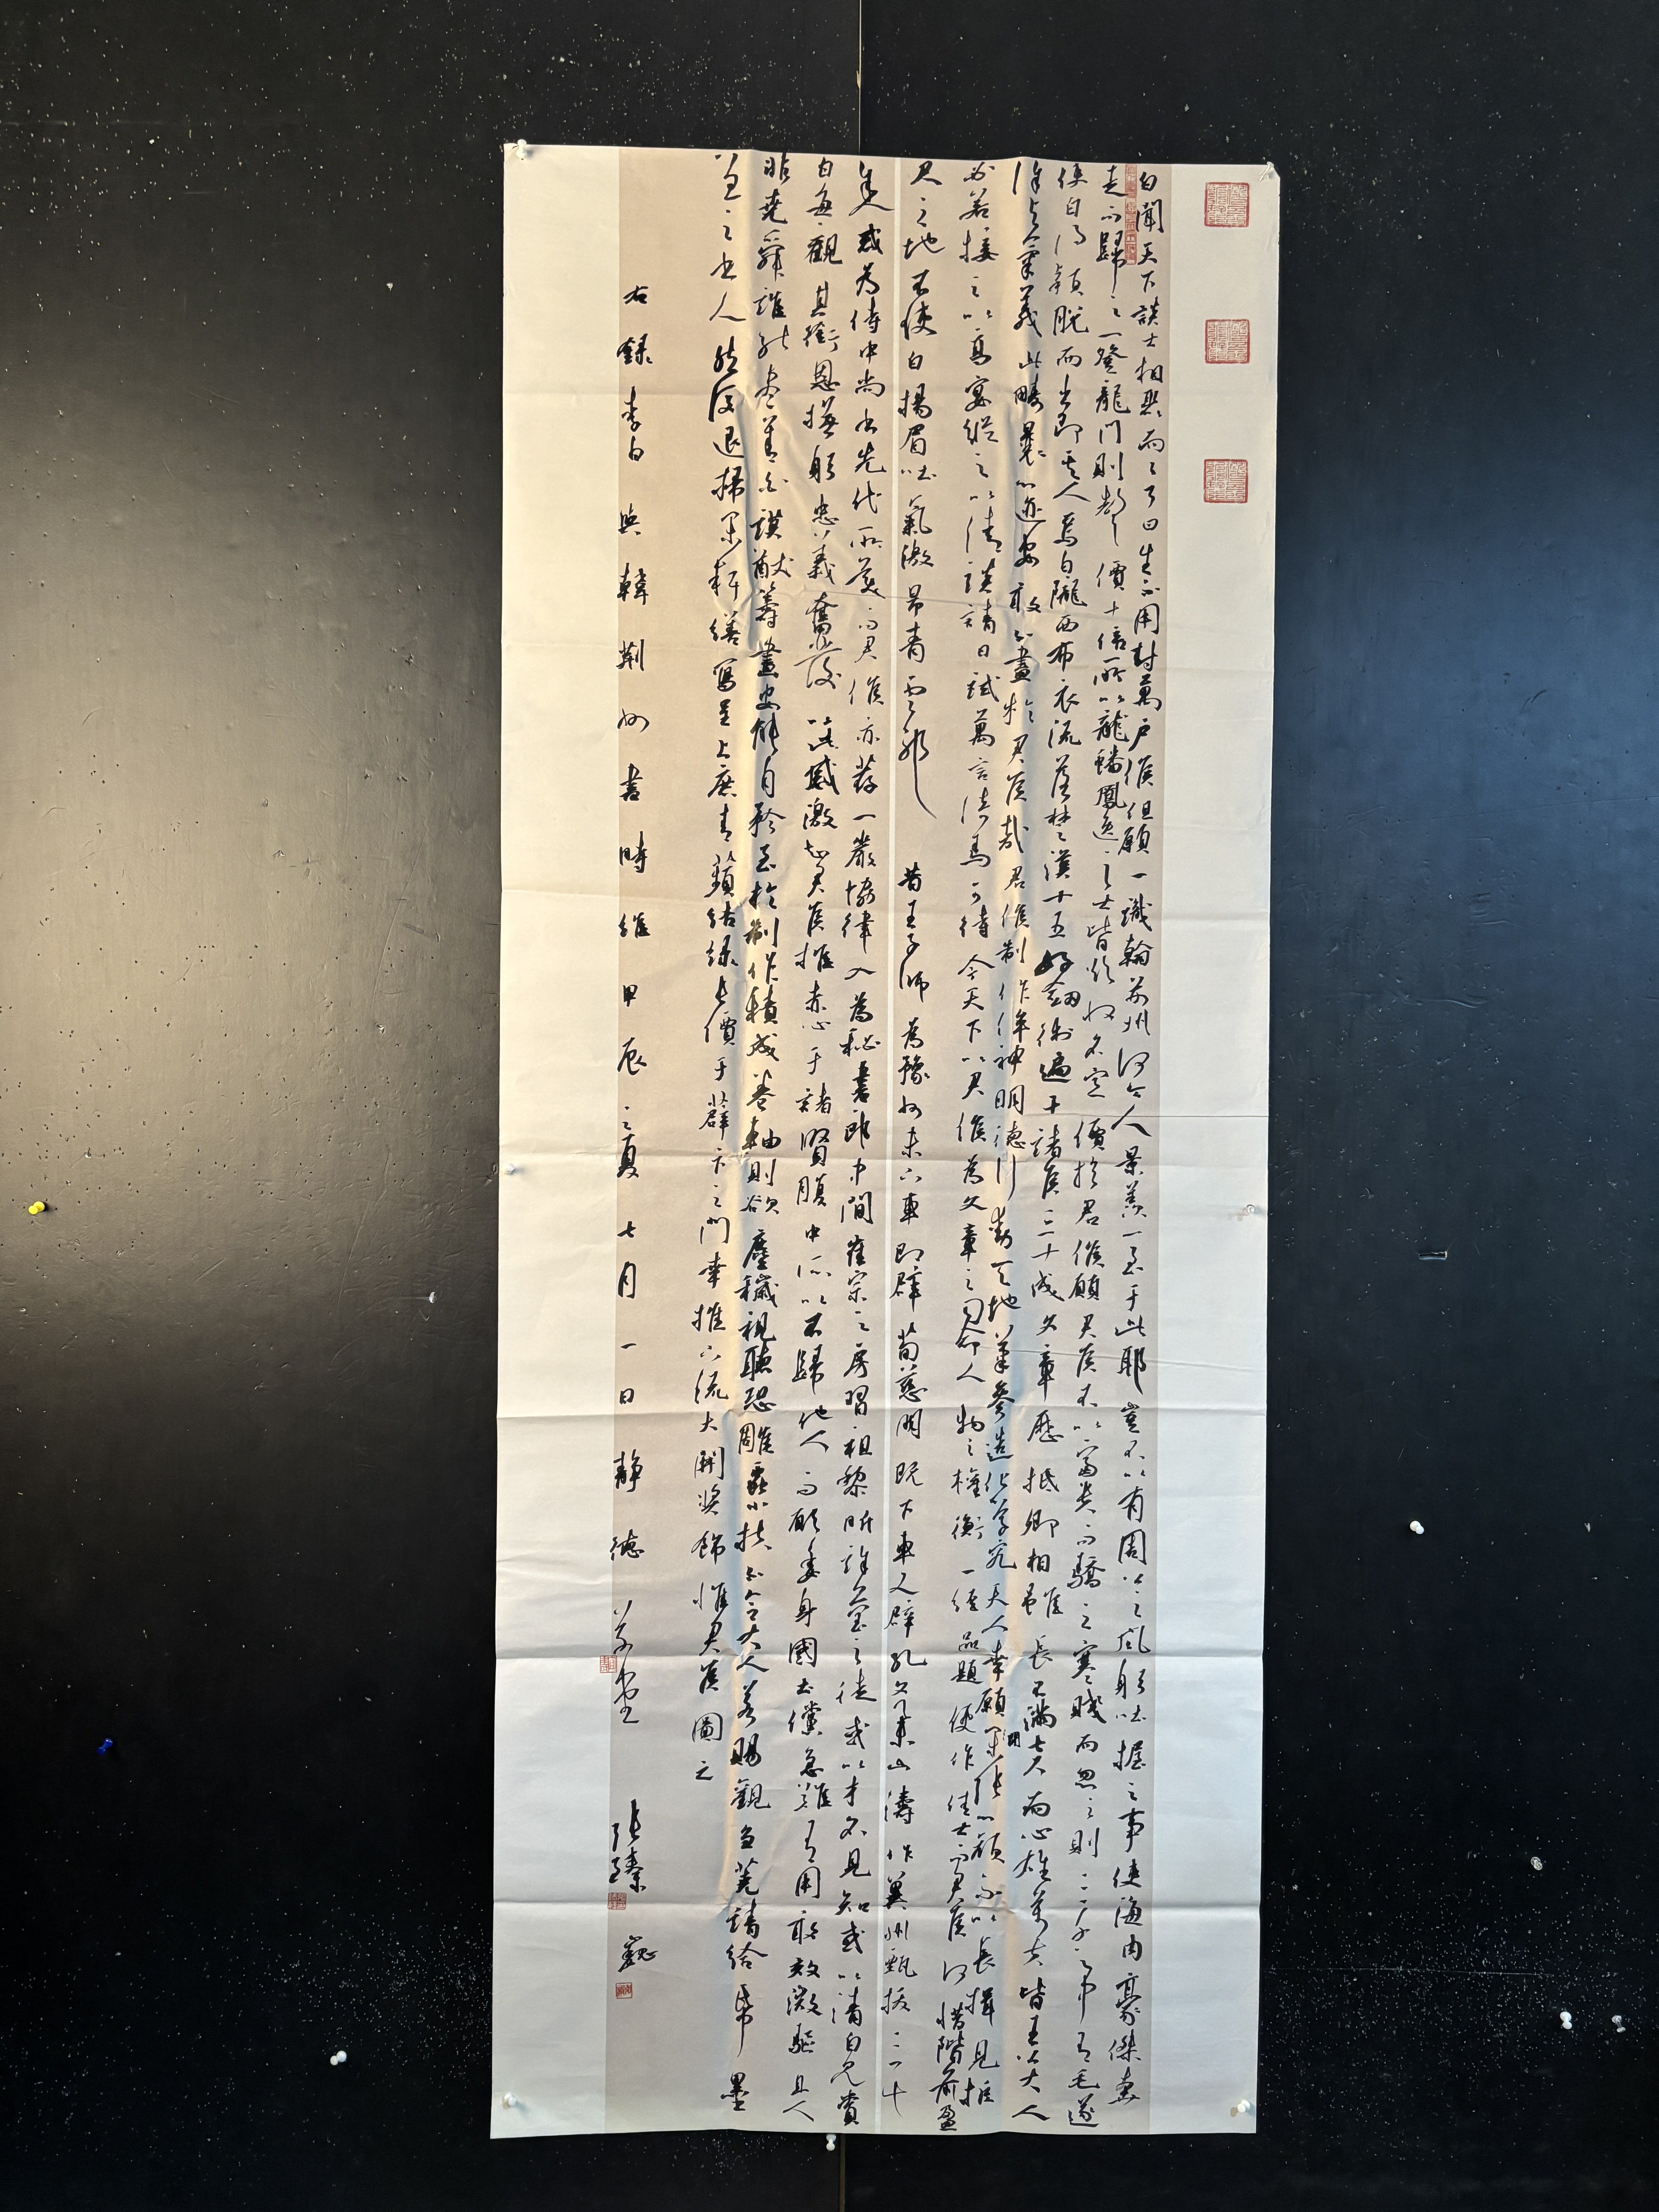 白聞天下談士相聚而言曰生不用封萬戶侯但願一識韓荊州何令人景慕一至于此耶豈不以有周公之風躬吐握之事使海內豪傑奔
走而歸之一登龍門則聲價十倍所以龍蟠鳳逸之士皆欲收名定價於君侯願君侯不以富貴而驕之寒賤而忽之則三千之中有毛遂
使白得穎脫而出即其人焉白隴西布衣流落楚漢十五好劍術遍干諸侯三十成文章歷抵卿相雖長不滿七尺而心雄萬夫皆王公大人
許與氣義此疇曩心迹安敢不盡於君侯哉君侯制作侔神明德行動天地筆參造化學究天人幸願開張心顏不以長揖見拒
必若接之以高宴縱之以清談請日試萬言倚馬可待今天下以君侯為文章之司命人物之權衡一經品題便作佳士而君侯何惜階前盈
尺之地不使白揚眉吐氣激昂青雲耶 昔王子師為豫州未下車即辟荀慈明既下車又辟孔文舉山濤作冀州甄拔三十
餘人或為侍中尚書先代所美而君侯亦薦一嚴協律入為秘書郎中間崔宗之房習祖黎昕許瑩之徒或以才名見知或以清白見賞
白每觀其銜恩撫躬忠義奮發以此感激知君侯推赤心于諸賢腹中所以不歸他人而願委身國士儻急難有用敢效微軀且人
非堯舜誰能盡善白謨猷籌畫安能自矜至於制作積成卷軸則欲塵穢視聽恐雕蟲小技不合大人若賜觀芻蕘請給紙墨
兼之書人然後退掃閑軒繕寫呈上庶青萍結綠長價于薛卞之門幸推下流大開獎飾惟君侯圖之
右錄李白與韓荊州書時維甲辰之夏七月一日靜德草堂 張臻